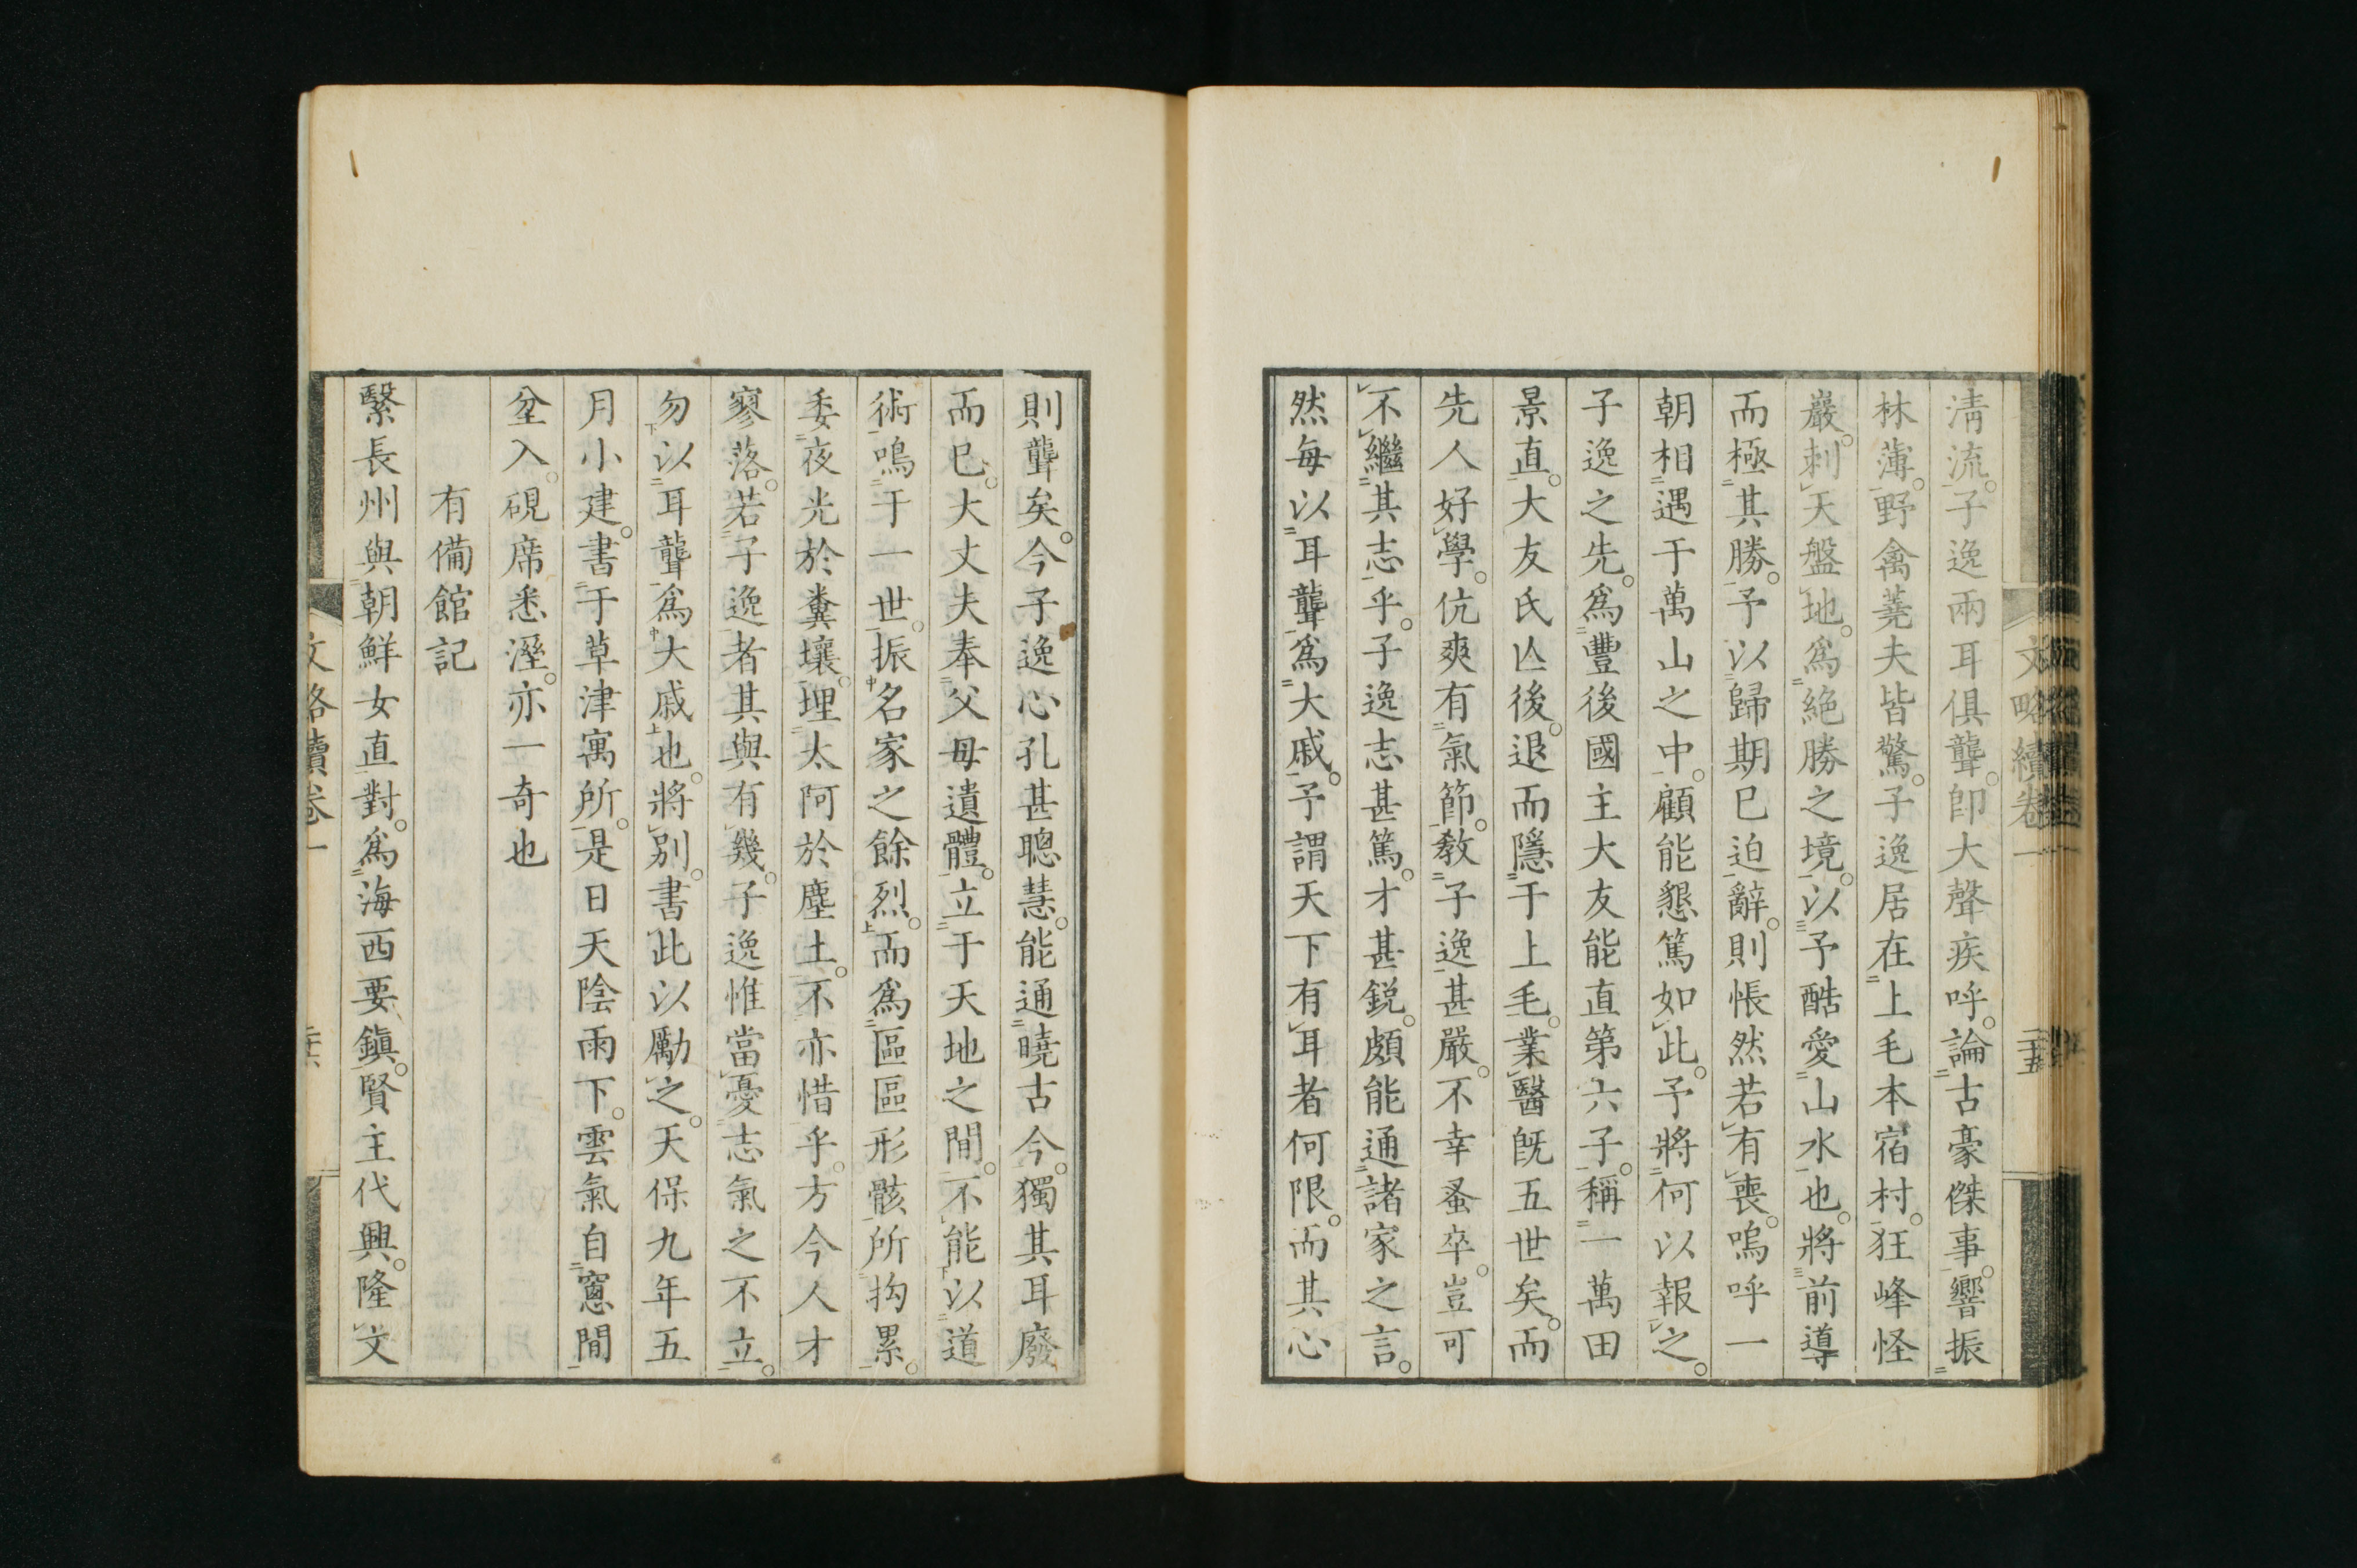 文略續卷一
二十五
淸流。子逸兩耳俱聾。卽大聲疾呼。論古豪傑事。響振
林薄。野禽蕘夫皆驚。子逸居在上毛本宿村。狂峰怪
巖。刺天盤地。爲絶勝之境。以予酷愛山水也。將前導
而極其勝。予以歸期已迫辭。則悵然若有喪。嗚呼一
朝相遇于萬山之中。顧能懇篤如此。予將何以報之。
子逸之先。爲豐後國主大友能直第六子。稱一萬田
景直。大友氏亾後。退而隱于上毛。業醫旣五世矣。而
先人好學。伉爽有氣節。敎子逸甚嚴。不幸蚤卒。豈可
不繼其志乎。子逸志甚篤。才甚銳。頗能通諸家之言。
然每以耳聾爲大戚。予謂天下有耳者何限。而其心
則聾矣。今子逸心孔甚聰慧。能通曉古今。獨其耳廢
而已。大丈夫奉父母遺體。立于天地之間。不能以道
術鳴于一世。振名家之餘烈。而爲區區形骸所拘累。
委夜光於糞壤。埋太阿於塵土。不亦惜乎。方今人才
寥落。若子逸者其與有幾。子逸惟當憂志氣之不立。
勿以耳聾爲大戚也。將別。書此以勵之。天保九年五
月小建。書于草津寓所。是日天陰雨下。雲氣自窻間
坌入。硯席悉溼。亦一奇也
有備館記
繄長州與朝鮮女直對。爲海西要鎭。賢主代興。隆文
文略續卷一
二十六